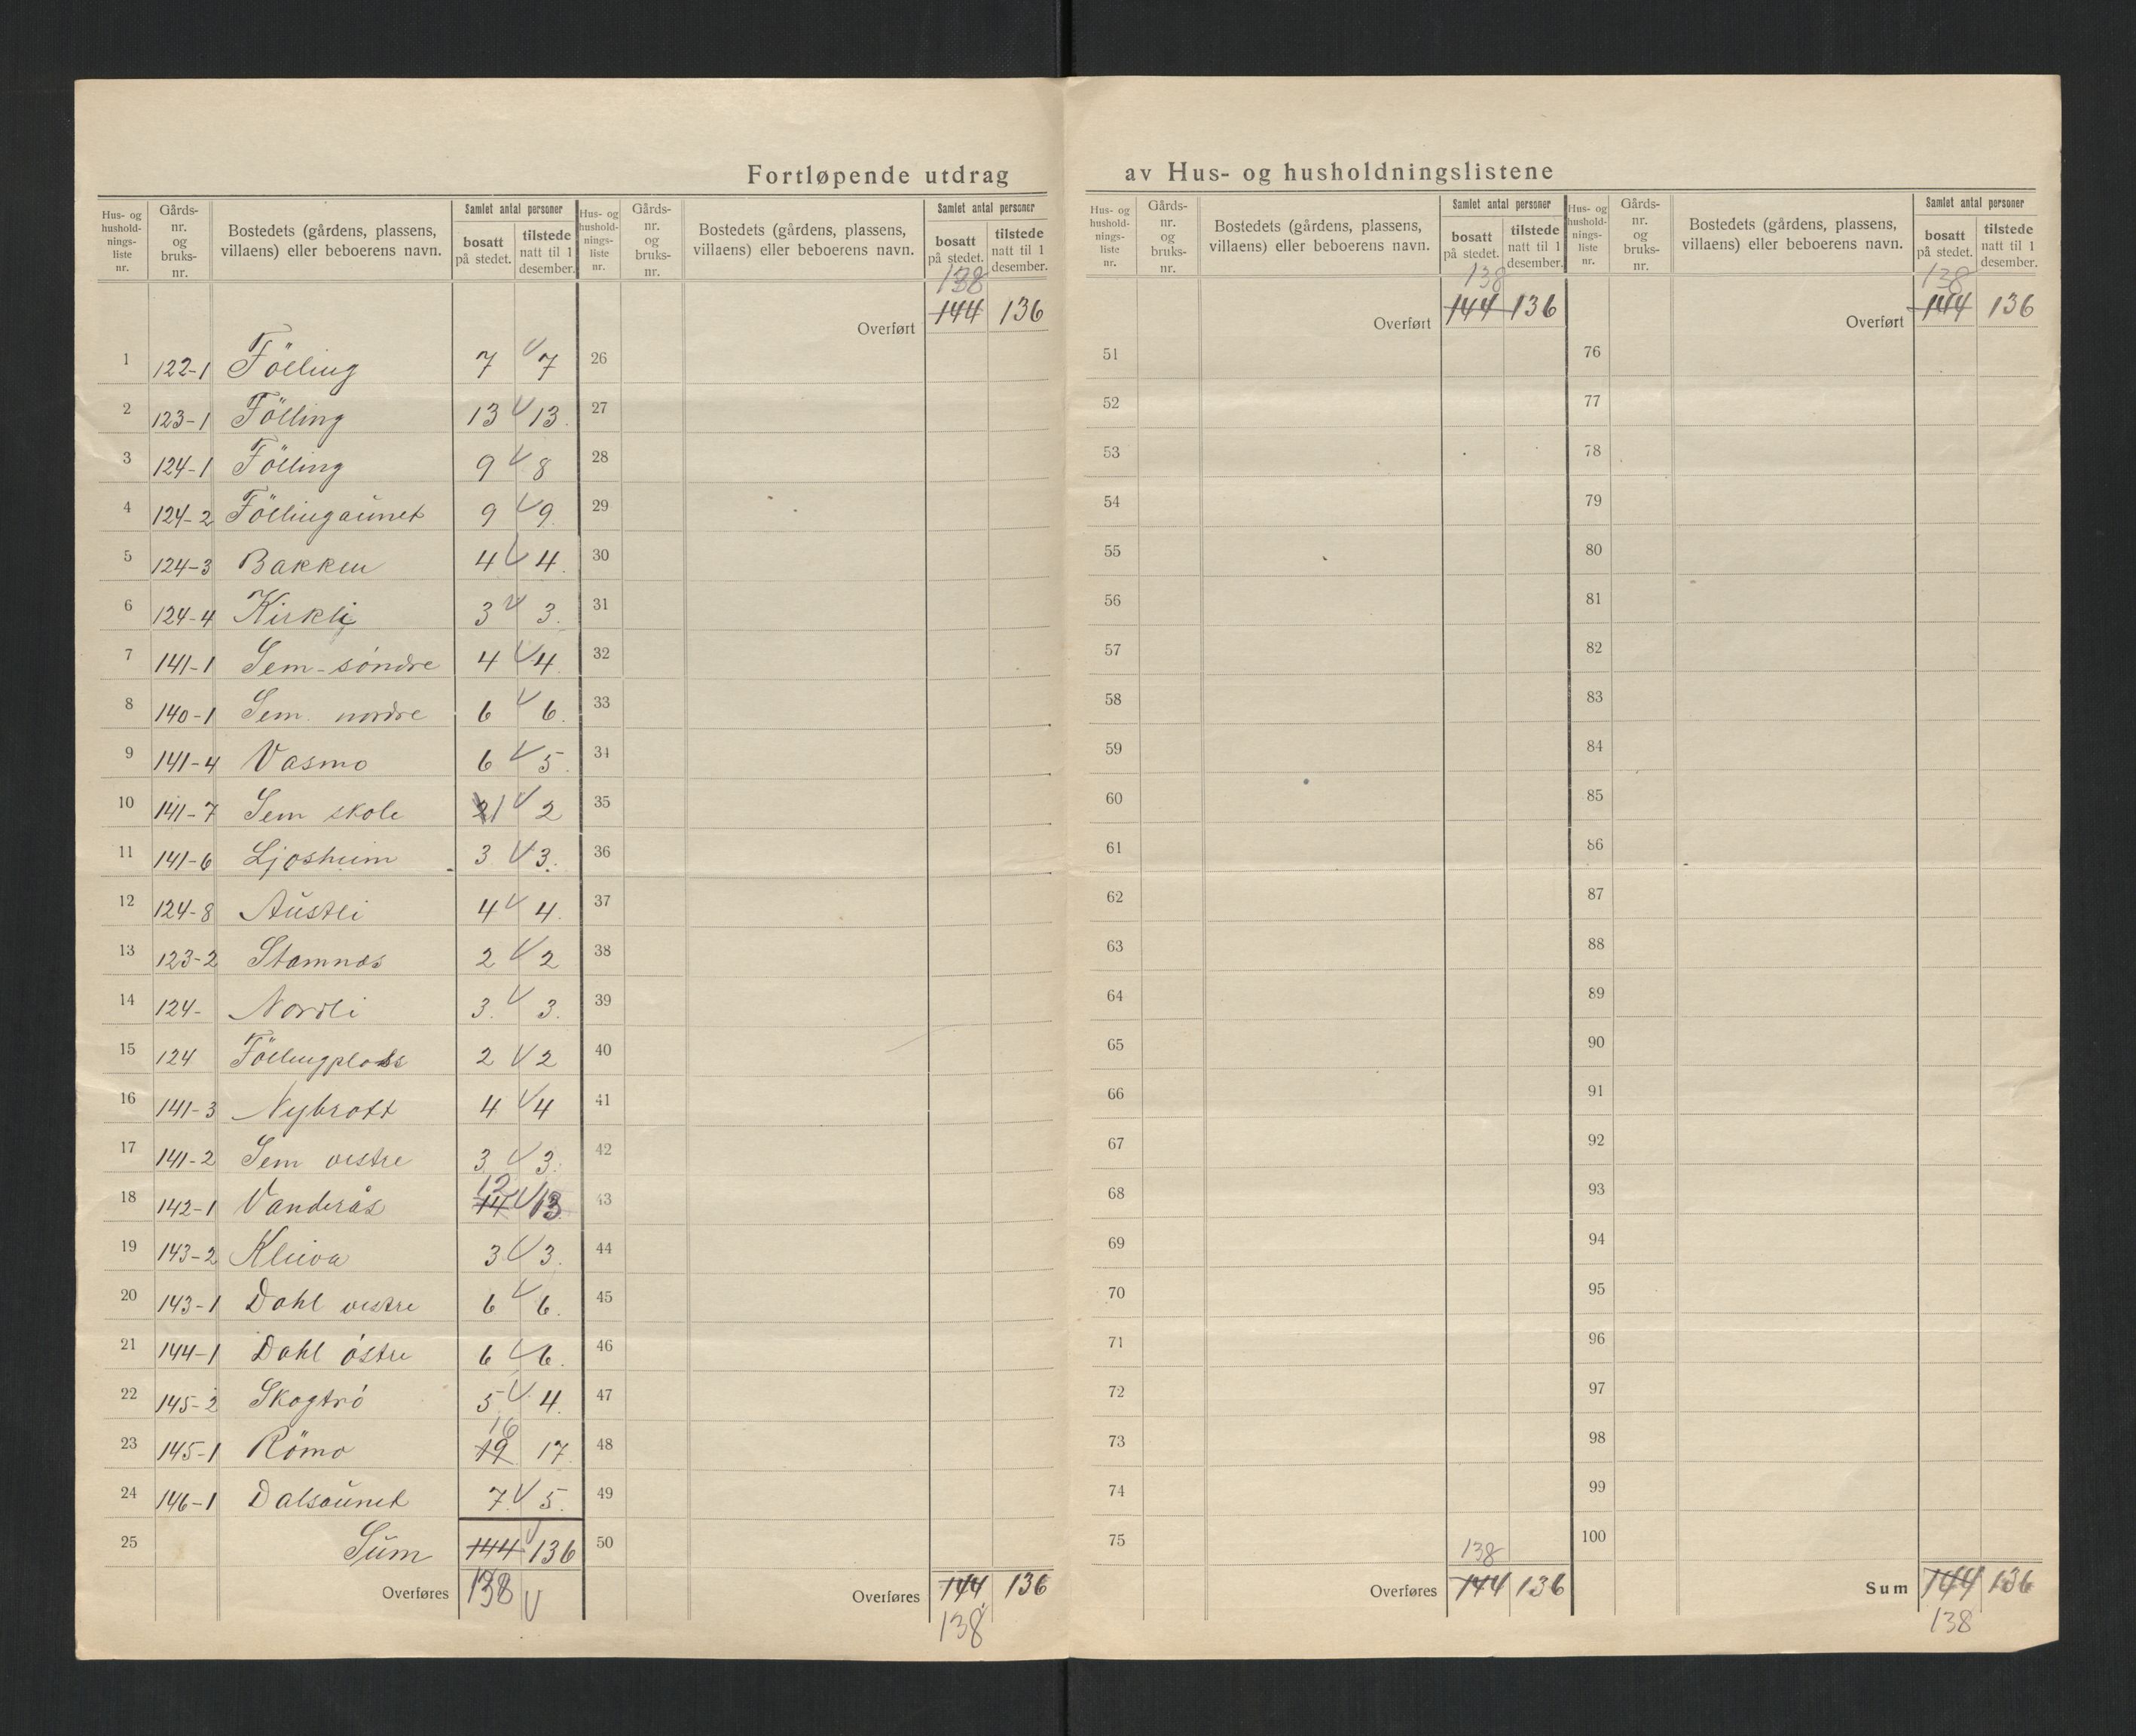 Fortløpende utdrag av Hus- og husholdningslistene
Hus- og husholdningsliste nr. | Gårds- nr. og bruks- nr. | Bostedets (gårdens, plassens, villaens) eller beboerens navn. | Samlet antal personer | bosatt på stedet. | tilstede natt til 1 desember.
1 122-1 Fölling 7 V 7
2 123-1 Fölling 13 V 13.
3 124-1 Fölling 9 V 8
4 124-2 Föllingaunet 9 V 9.
5 124-3 Bakken 4 V 4.
6 124-4 Kirkli 3 V 3.
7 141-1 Sem-söndre 4 V 4.
8 140-1 Sem. nordre 6 V 6.
9 141-4 Vasmo 6 V 5.
10 141-7 Sem skole 2 1 V 2
11 141-6 Ljosheim 3 V 3.
12 124-8 Austli 4 V 4.
13 123-2 Stamnes 2 V 2
14 124- Nordli 3. V 3.
15 124 Föllingplass 2 V 2
16 141-3 Nybrott 4 V 4
17 141-2 Sem vestre 3 V 3.
12
18 142-1 Vanderås 14 V 13
19 143-2 Kleiva 3. V 3.
20 143-1 Dahl vestre 6 V 6.
21 144-1 Dahl östre 6 V 6.
22 145-2 Skogtrö 5 V 4.
16
23 145-1 Römo 19 17
24 146-1 Dalsaunet 7. V 5.
25 Sum 144 V 136
Overføres 138 V
Hus- og husholdningsliste nr. | Gårds- nr. og bruks- nr. | Bostedets (gårdens, plassens, villaens) eller beboerens navn. | Samlet antal personer | bosatt på stedet. | tilstede natt til 1 desember.
138
Overført 144 136
26
27
28
29
30
31
32
33
34
35
36
37
38
39
40
41
42
43
44
45
46
47
48
49
50
Overføres 144 136
138
Hus- og husholdningsliste nr. | Gårds- nr. og bruks- nr. | Bostedets (gårdens, plassens, villaens) eller beboerens navn. | Samlet antal personer | bosatt på stedet. | tilstede natt til 1 desember.
138
Overført 144 136
51
52
53
54
55
56
57
58
59
60
61
62
63
64
65
66
67
68
69
70
71
72
73
74
75
138
Overføres 144 136
Hus- og husholdningsliste nr. | Gårds- nr. og bruks- nr. | Bostedets (gårdens, plassens, villaens) eller beboerens navn. | Samlet antal personer | bosatt på stedet. | tilstede natt til 1 desember.
138
Overført 144 136
76
77
78
79
80
81
82
83
84
85
86
87
88
89
90
91
92
93
94
95
96
97
98
99
100
Sum 144 136
138